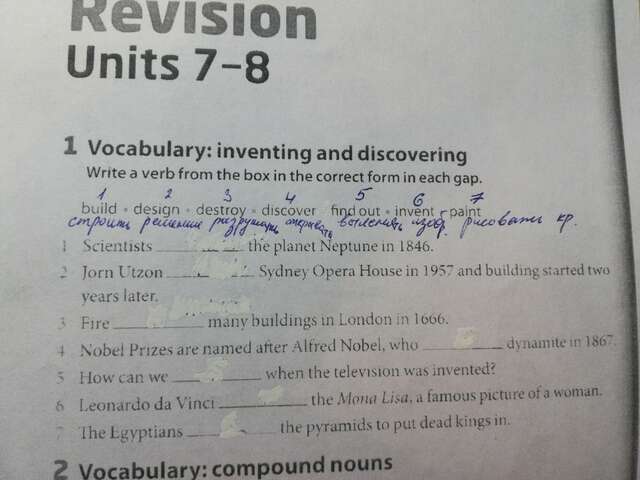 Revision
Units 7–8
1 Vocabulary: inventing and discovering
Write a verb from the box in the correct form in each gap.
1 2 3 4 5 6 7
build • design • destroy • discover find out • invent • paint
строить решение разрушать выяснить изоб. рисовать кр.
1 Scientists ________ the planet Neptune in 1846.
2 Jorn Utzon ________ Sydney Opera House in 1957 and building started two
years later.
3 Fire ________ many buildings in London in 1666.
4 Nobel Prizes are named after Alfred Nobel, who ________ dynamite in 1867.
5 How can we ________ when the television was invented?
6 Leonardo da Vinci ________ the Mona Lisa, a famous picture of a woman.
7 The Egyptians ________ the pyramids to put dead kings in.
2 Vocabulary: compound nouns